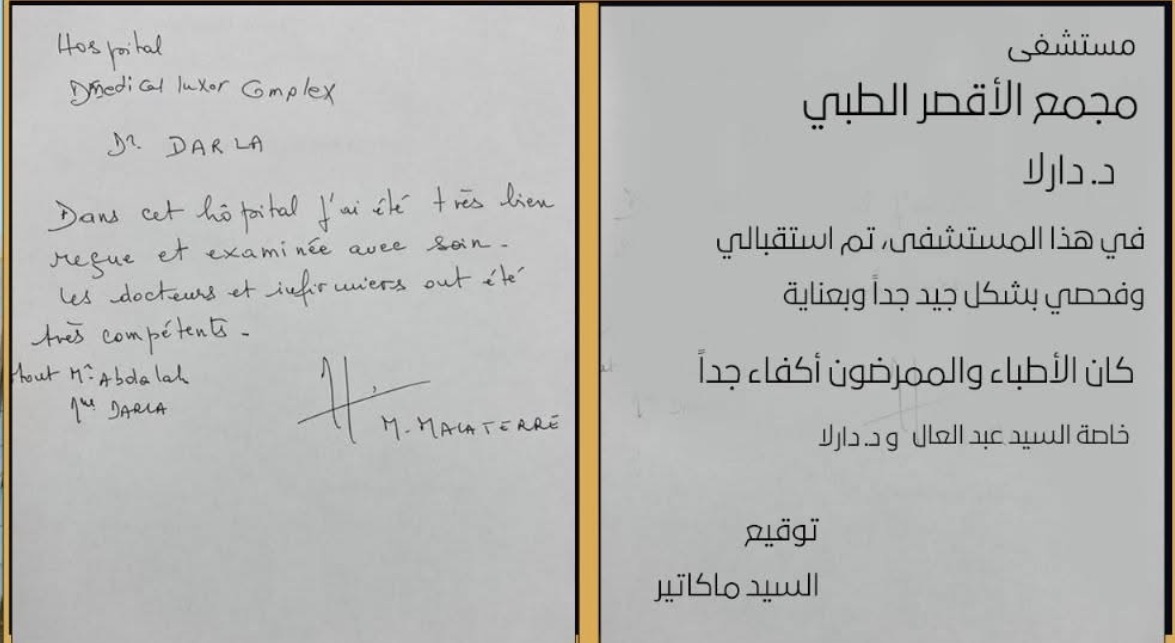 Hospital
Medical luxor Complex
Dr. DARLA
Dans cet hôpital j'ai été très bien
reçue et examinée avec soin.
Les docteurs et infirmiers ont été
très compétents.
tout Mr Abdalah
DARLA
M. MALATERRE
مستشفى
مجمع الأقصر الطبي
د. دارلا
في هذا المستشفى، تم استقبالي
وفحصي بشكل جيد جداً وبعناية
كان الأطباء والممرضون أكفاء جداً
خاصة السيد عبد العال و د. دارلا
توقيع
السيد ماكاتير